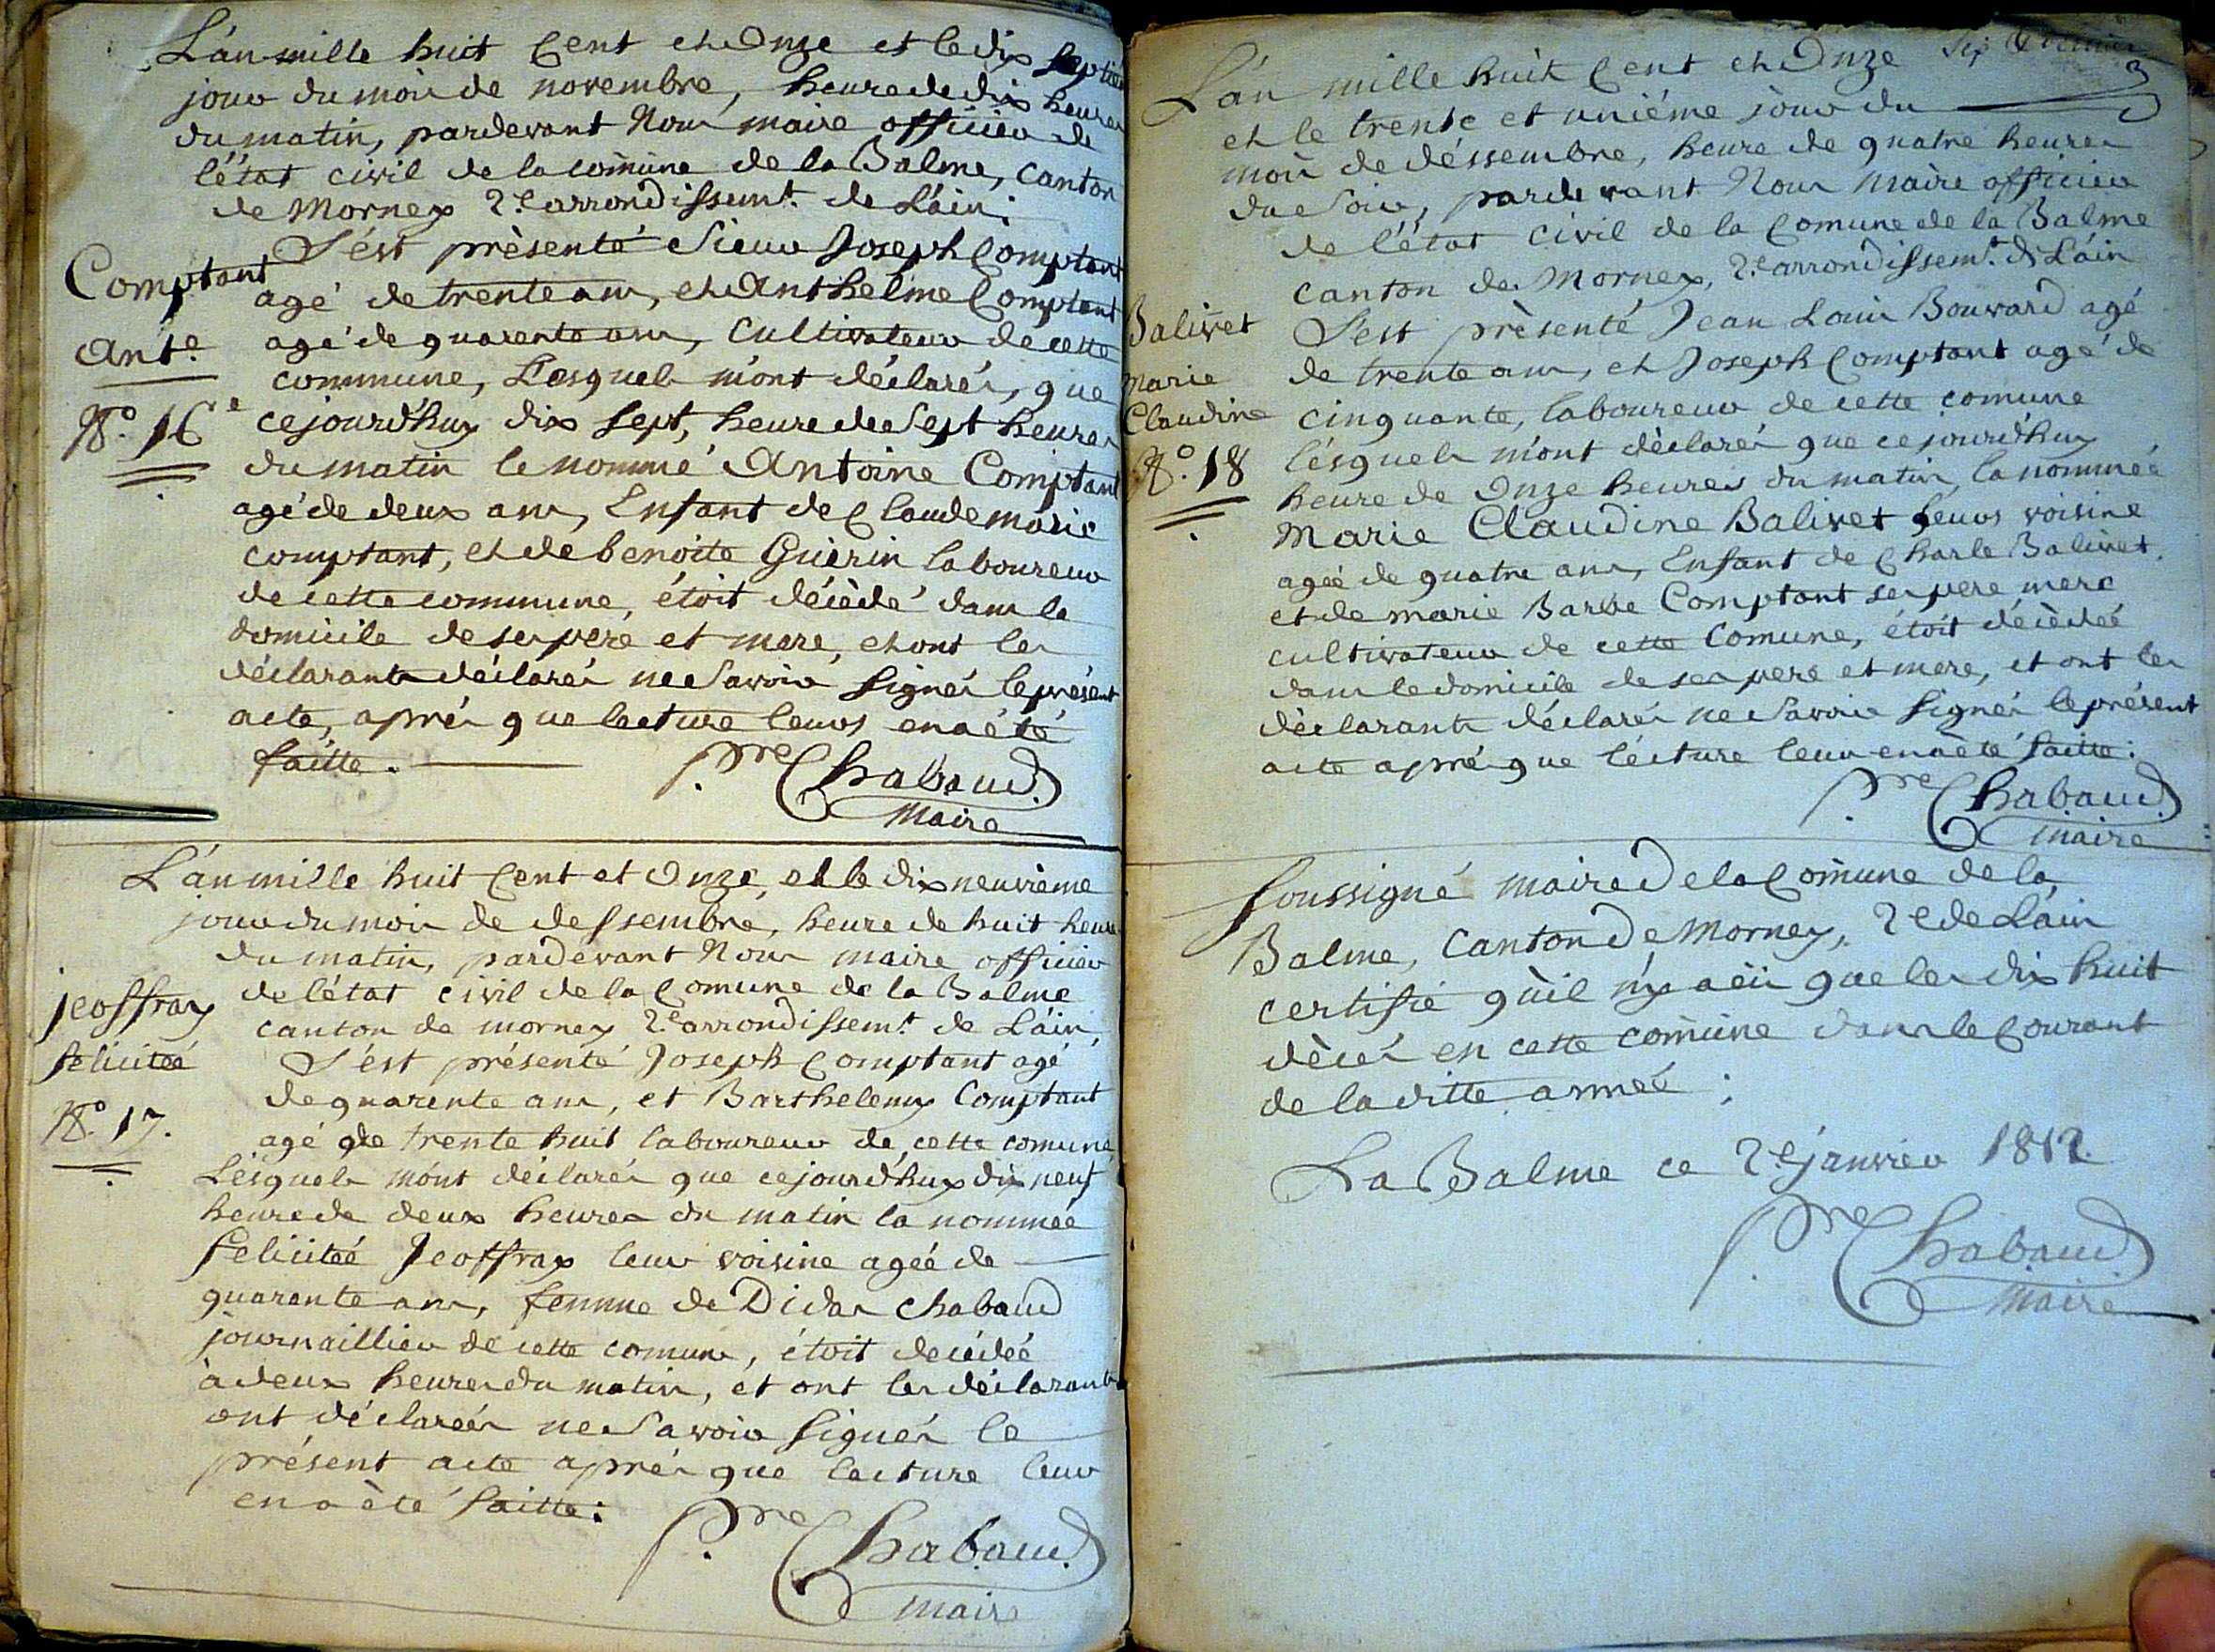 L'an mille huit Cent et Onze et le dix septiem
jour du mois de novembre, heure de dix heures
du matin, pardevant Nous maire officier de
l'état civil de la comùne de la Balme, Canton
de Mornex 2.e arrondissem.t de L'ain;
S'est prèsenté Sieur Joseph Comptant
Comptant
agé de trente ans, et Anthelme Comptant
Ant.e
agé de quarente ans, Cultivateur de cette
commune, Lesquels m'ont déclarés, que
N.o 16
ce jourd'huy dix sept, heure de Sept heures
du matin le nommé Antoine Comptant
agé de deux ans, Enfant de Claude marie
comptant, et de benoite Guèrin laboureur
de cette commune, étoit décèdé dans le
domicile de ses pere et mere, et ont les
déclarants déclarés ne Savoir Signés le présent
acte, aprés que lecture leurs en a été
faitte.
P.re Chabaud
Maire
L'an mille huit Cent et Onze, et le dix neuvième
jour du mois de dessembre, heure de huit heure
du matin, pardevant Nous maire officier
de l'état civil de la Comune de la Balme
jeoffray
canton de mornex 2.e arrondissem.t de L'ain,
felicitée
S'est présenté Joseph Comptant agé
de quarente ans, et Barthelemy Comptant
N.o 17.
agé de trente huit laboureur de cette comune
Lesquels m'ont déclarés que ce jourd'huy dix neuf
heure de deux heures du matin la nommée
felicitée Jeoffray leur voisine agéé de
quarante ans, femme de Didas Chabaud
journaillier de cette comune, étoit decédéé
à deux heures du matin, et ont les déclarants
ont déclareés ne Savoir Signés le
présent acte aprés que lecture leur
en a èté faitte:
P.re Chabaud
maire
L'an mille huit Cent et Onze
et le trente et unième jour du
mois de déssembre, heure de quatre heures
du Soir, pardevant Nous Maire officier
de l'état civil de la Comune de la Balme
canton de Mornex, 2.e arrondissem.t de L'ain
Balivet
S'est prèsenté Jean Louis Bouvard agé
Marie
de trente ans, et Joseph Comptant agé de
Claudine
cinquante, laboureur de cette comune
N.o 18
lésquels m'ont dèclarés que ce jourd'huy
heure de Onze heures du matin, la nommée
Marie Claudine Balivet leurs voisine
agéé de quatre ans, Enfant de Charle Balivet.
et de marie Barbe Comptant ses pere mere
cultivateur de cette Comune, étoit décèdéé
dans le domicile de ses pere et mere, et ont les
dèclarants déclarés ne Savoir Signés le présent
acte aprés que lécture leur en a èté faitte:
P.re Chabaud
maire
Soussigné maire de la Comùne de la
Balme, Canton de Mornex, 2.e de L'ain
certifie qu'il n'y a eù que les dix huit
dècés en cette comùne dans le Courant
de la ditte année;
La Balme ce 2.e janvier 1812.
P.re Chabaud
Maire